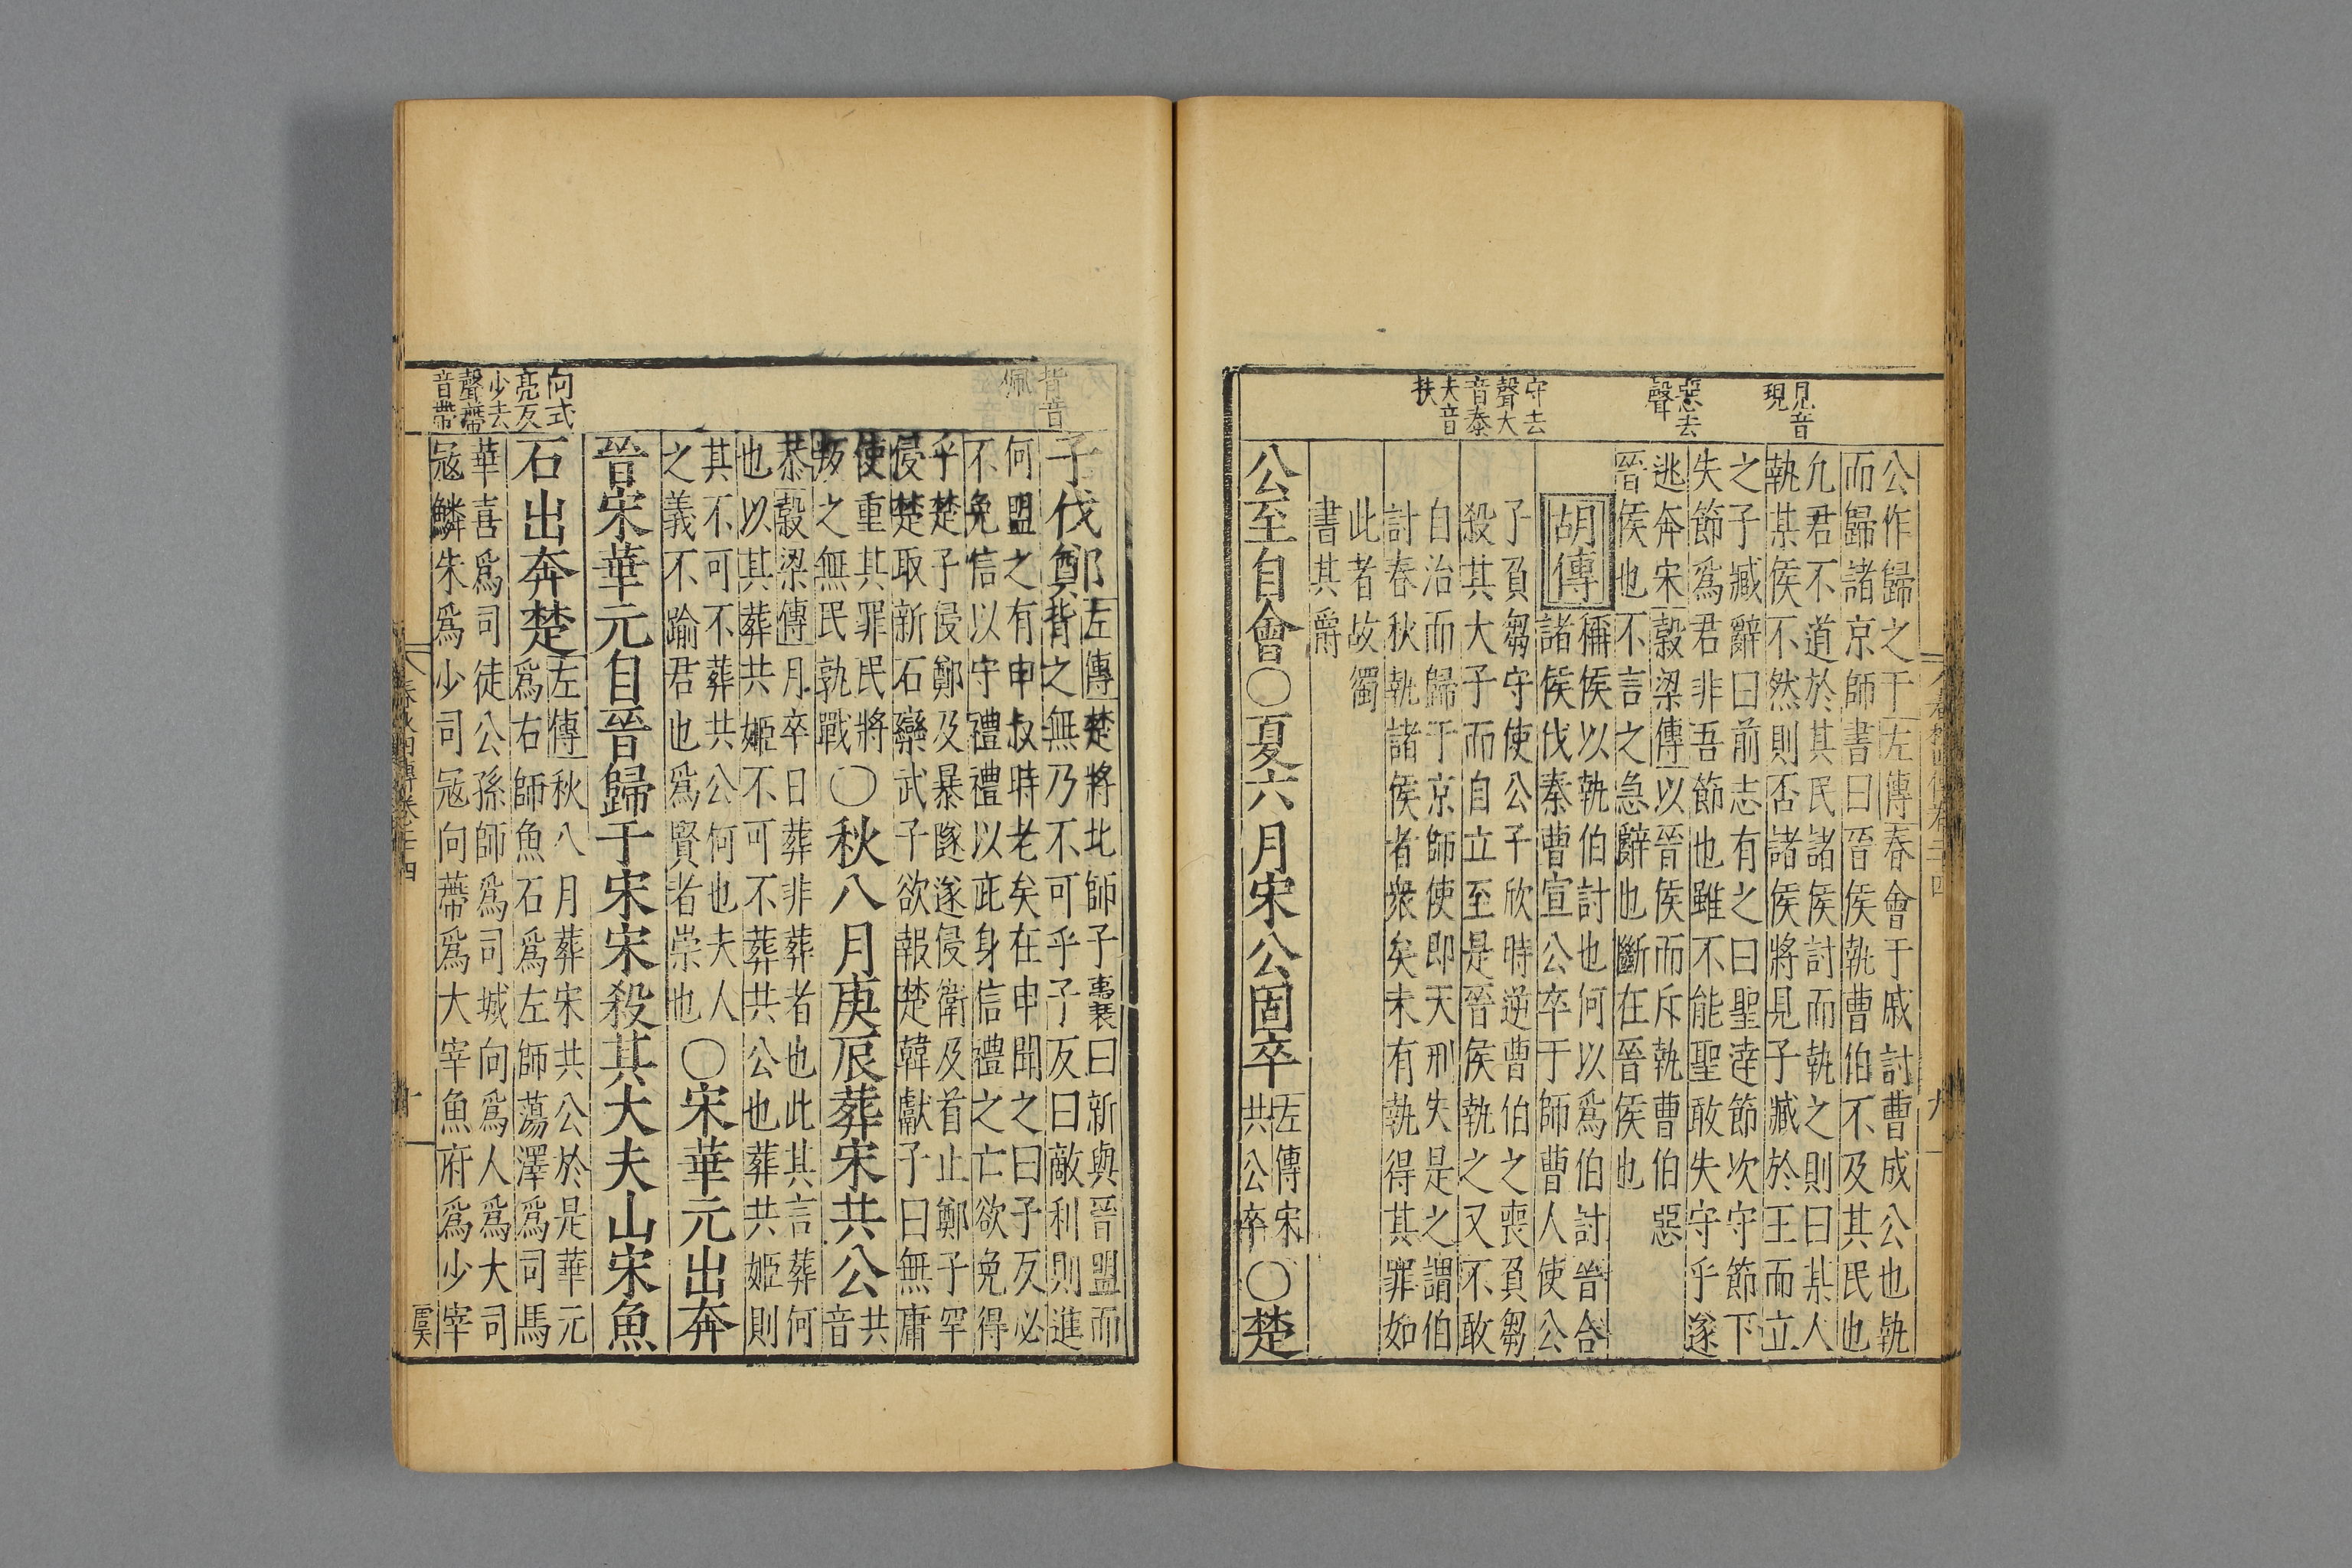 見音
現
惡去
聲
守去
聲大
音泰
夫音
扶
公作歸之于左傳春會于戚討曹成公也執
而歸諸京師書曰晉侯執曹伯不及其民也
凡君不道於其民諸侯討而執之則曰某人
執某侯不然則否諸侯將見子臧於王而立
之子臧辭曰前志有之曰聖達節次守節下
失節爲君非吾節也雖不能聖敢失守乎遂
逃奔宋穀梁傳以晉侯而斥執曹伯惡
晉侯也不言之急辭也斷在晉侯也
胡傳
稱侯以執伯討也何以爲伯討晉合
諸侯伐秦曹宣公卒于師曹人使公
子負芻守使公子欣時逆曹伯之喪負芻
殺其大子而自立至是晉侯執之又不敢
自治而歸于京師使即天刑失是之謂伯
討春秋執諸侯者衆矣未有執得其罪如
此者故蜀
書其爵
公至自會○夏六月宋公固卒
左傳宋
共公卒
○楚
春秋四傳卷二十四
九
背音
佩
向式
亮反
少去
聲蔕
音帶
子伐鄭
左傳楚將北師子囊曰新與晉盟而
背之無乃不可乎子反曰敵利則進
何盟之有申叔時老矣在申聞之曰子反必
不免信以守禮禮以庇身信禮之亡欲免得
乎楚子侵鄭及暴隧遂侵衛及首止鄭子罕
侵楚取新石欒武子欲報楚韓獻子曰無庸
使重其罪民將
叛之無民孰戰
○秋八月庚辰葬宋共公
共
音
恭穀梁傳月卒日葬非葬者也此其言葬何
也以其葬共姬不可不葬共公也葬共姬則
其不可不葬共公何也夫人
之義不踰君也爲賢者崇也
○宋華元出奔
晉宋華元自晉歸于宋宋殺其大夫山宋魚
石出奔楚
左傳秋八月葬宋共公於是華元
爲右師魚石爲左師蕩澤爲司馬
華喜爲司徒公孫師爲司城向爲人爲大司
寇鱗朱爲少司寇向蔕爲大宰魚府爲少宰
春秋四傳卷二十四
十